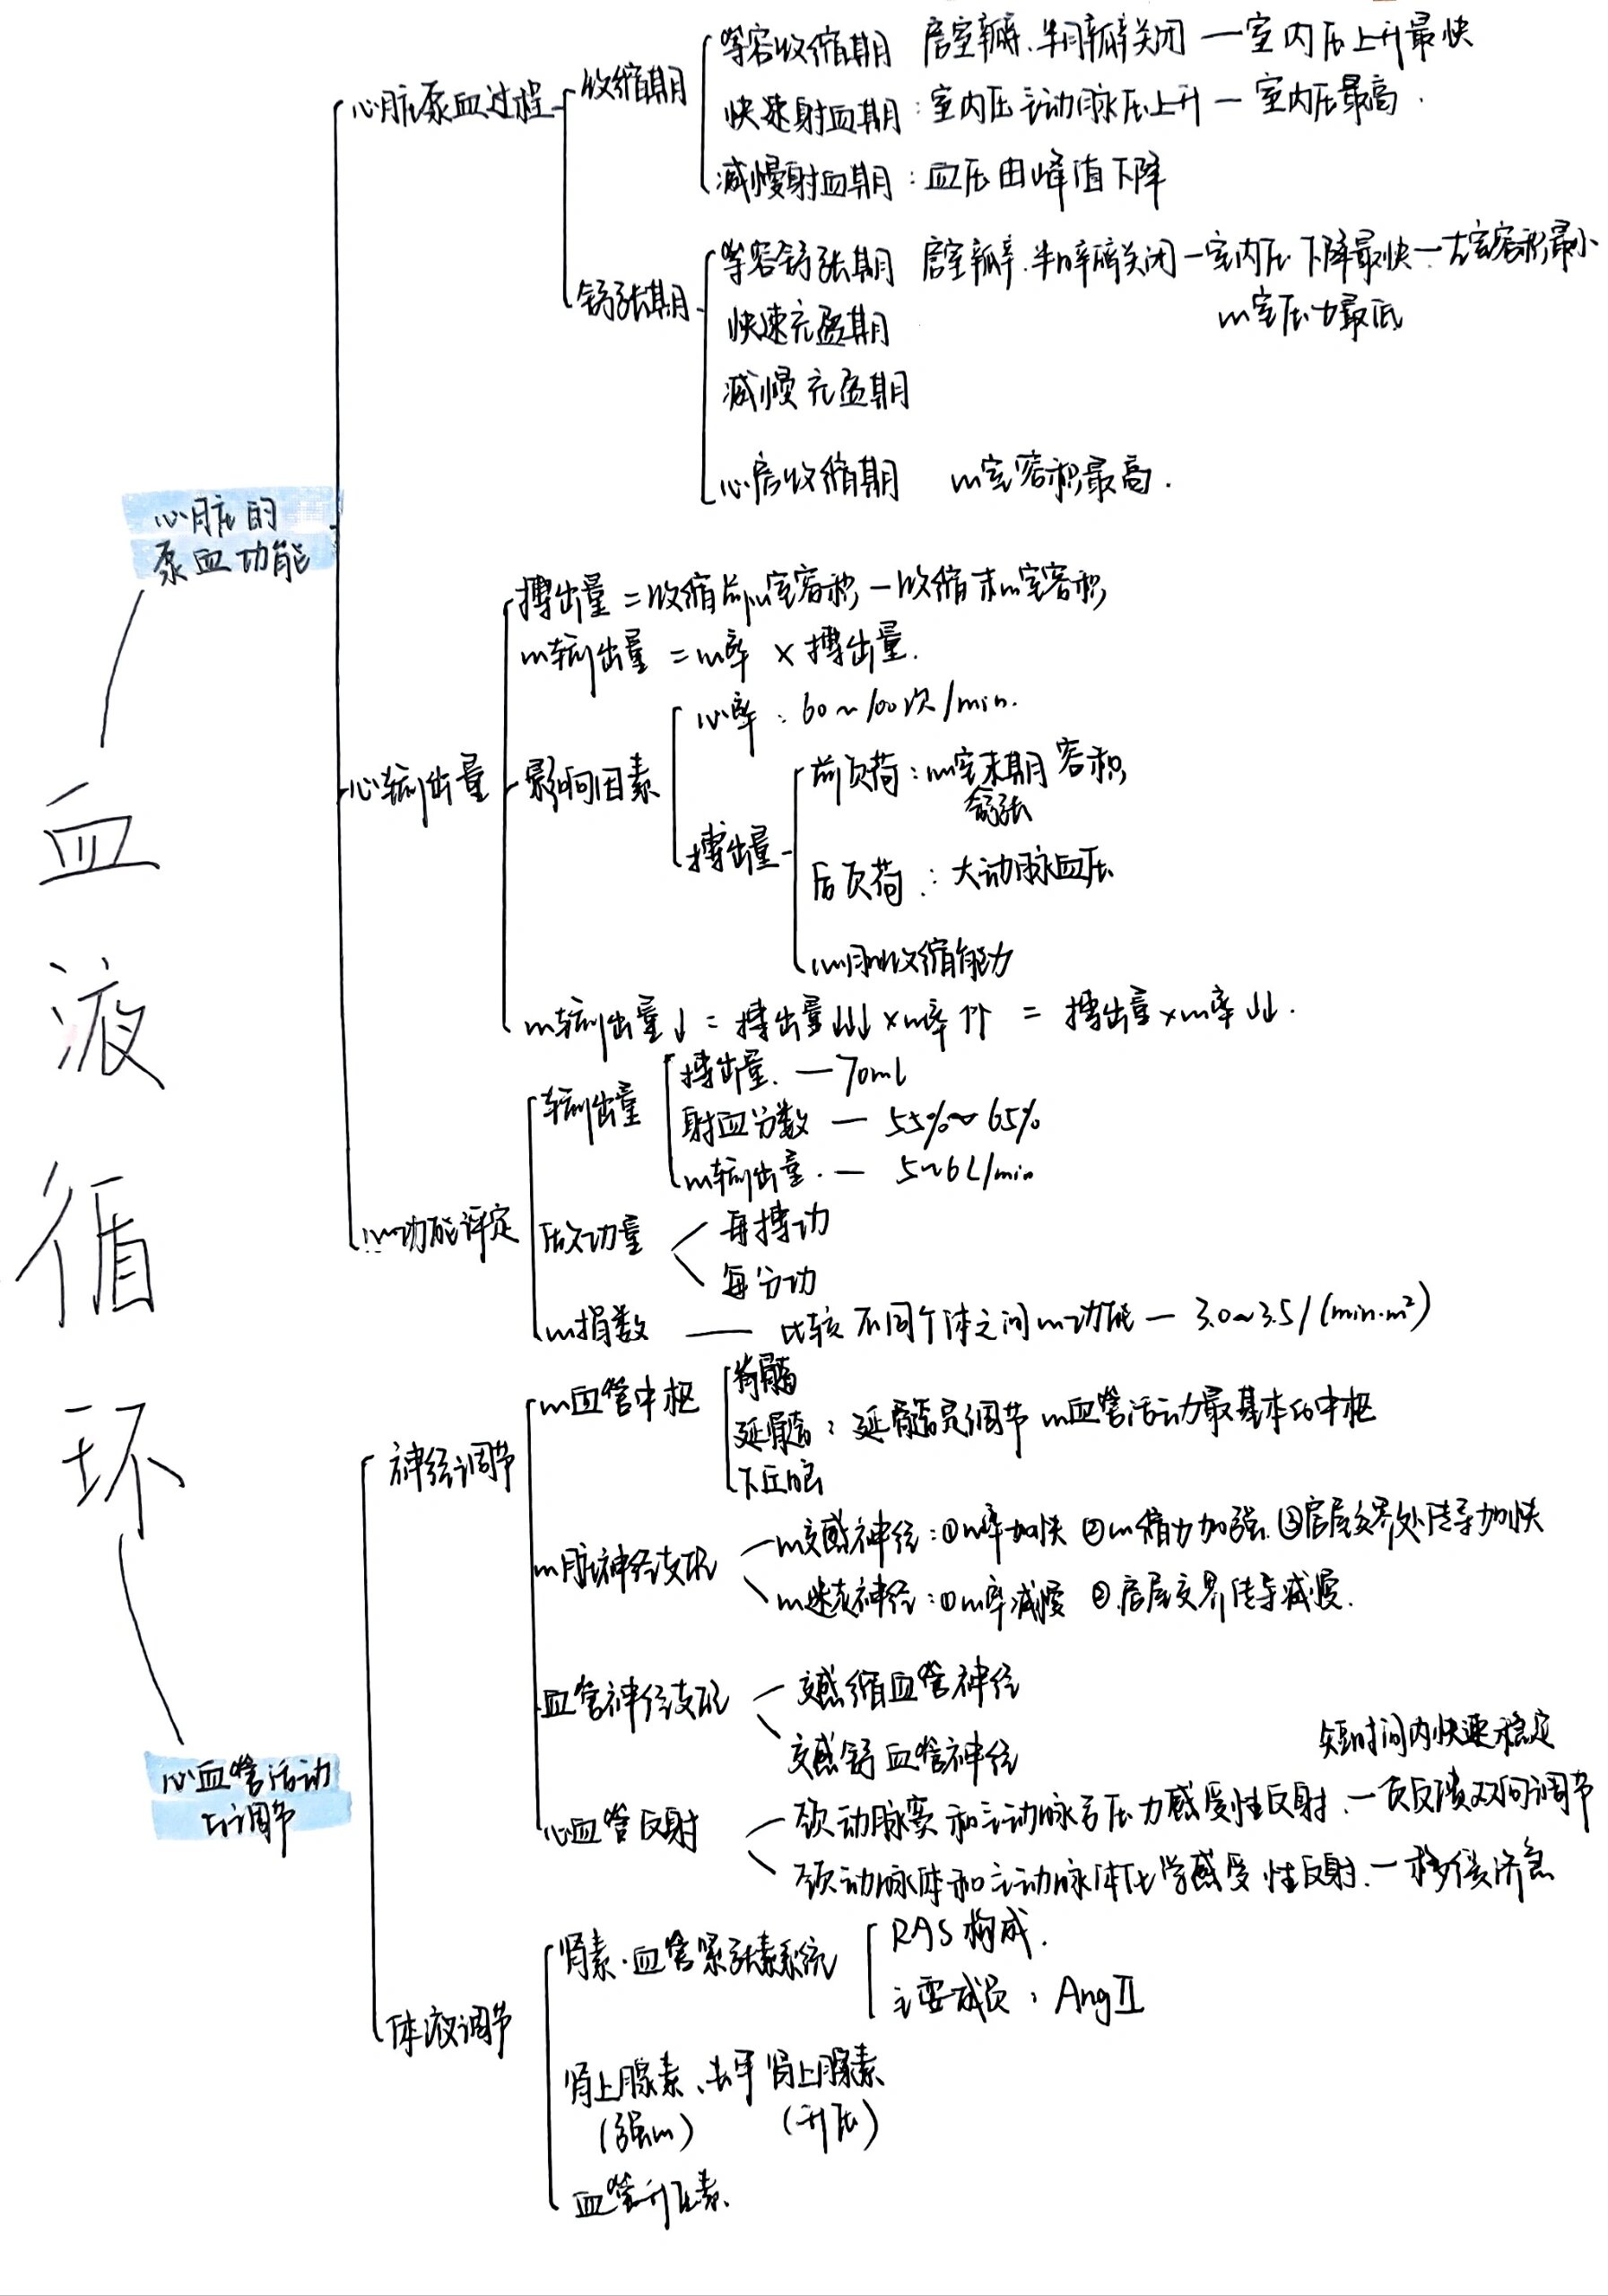 血液循环
心脏的
泵血功能
心脏泵血过程
收缩期
等容收缩期 房室瓣.半月瓣关闭 — 室内压上升最快
快速射血期：室内压 主动脉压上升 — 室内压最高.
减慢射血期：血压由峰值下降
舒张期
等容舒张期 房室瓣.半月瓣关闭 — 室内压下降最快 — 左室容积最小
快速充盈期 心室压力最低
减慢充盈期
心房收缩期 心室容积最高.
心输出量
搏出量 = 收缩前心室容积 — 收缩末心室容积
心输出量 = 心率 × 搏出量.
影响因素
心率：60~100次/min.
搏出量
前负荷：心室末期容积
舒张
后负荷：大动脉血压
心肌收缩能力
心输出量↓ = 搏出量↓↓↓ × 心率↑↑ = 搏出量 × 心率↓↓.
心功能评定
输出量
搏出量. — 70ml
射血分数 — 55%~65%
心输出量. — 5~6L/min
做功量
每搏功
每分功
心指数 — 比较不同个体之间心功能 — 3.0~3.5/(min·m²)
心血管活动
的调节
神经调节
心血管中枢
脊髓
延髓：延髓是调节心血管活动最基本的中枢
下丘脑
心脏神经支配
心交感神经：①心率加快 ②心缩力加强. ③房室交界处传导加快
心迷走神经：①心率减慢 ②.房室交界传导减慢.
血管神经支配
交感缩血管神经
交感舒血管神经
心血管反射
短时间内快速稳定
颈动脉窦和主动脉弓压力感受性反射. — 负反馈双向调节
颈动脉体和主动脉体化学感受性反射. — 移缓济急
体液调节
肾素·血管紧张素系统
RAS构成.
主要成员：AngⅡ
肾上腺素、去甲肾上腺素
(强心) (升压)
血管升压素.